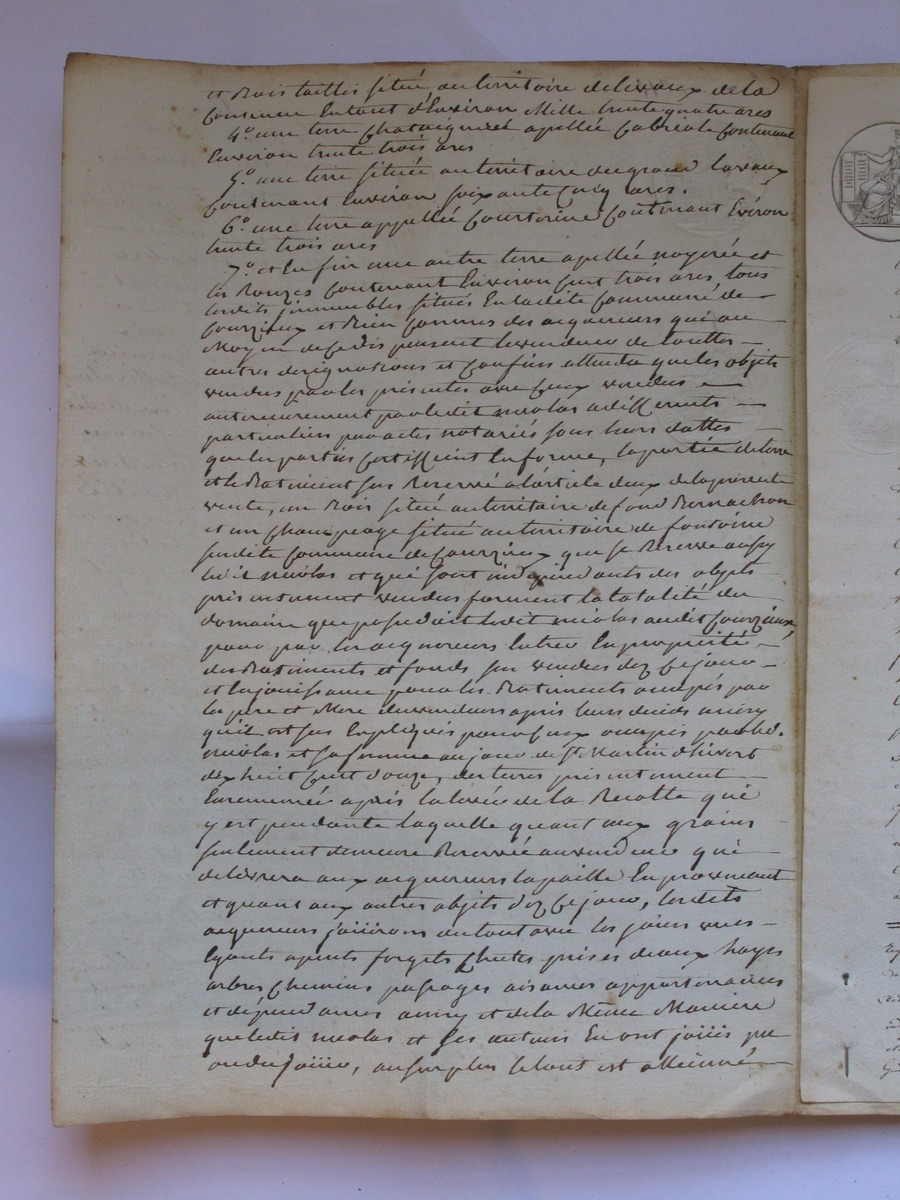 et Bois taillis situé au territoire de levaux de la
Contenue En tout d'Environ Mille trente quatre ares
4.° une terre Chataigneré apellée Cabriole Contenant
Environ trente trois ares
5.° une terre située au territoire du grand lavaux
Contenant Environ soixante Cinq ares.
6.° une terre appellée Courtorine Contenant Environ
trente trois ares
7.° et En fin une autre terre apellée noyorée et
les Ronzes Contenant Environ Cent trois ares, tous
lesdits jmmeubles situés En ladite Commune de
Courzieux et Bien Connus des acquereurs qui au
Moyen de Ce dispensent le vendeur de touttes
autres designations et Confins attendu que les objets
vendus par les présentes avec Ceux vendus
anterieurement par ledit nicolas a differents
particuliers par actes notariés sous leurs dattes
que les parties Certiffient En forme, la partie de terre
et le Batiment sus Reservé a l'article deux de la présente
vente, un Bois situé au territoire de fond Bernachon
et un Champéage situé au territoire de
susdite Commune de Courzieux que se Reserve aussy
ledit nicolas et qui sont independants des objets
présentement vendus forment la totalité du
domaine que possedait ledit nicolas audit Courzieux
pour par les acquereurs Entrer En propriété
des Batiments et fonds sus vendus dez Ce jour
et En jouissance pour les Batiments occupés par
les pere et Mere du vendeur après leurs décès ainsy
qu'il est sus Expliqué, pour Ceux occupés par led.
nicolas et sa femme au jour de St Martin d'hivert
dix huit Cent douze, des terres présentement
Ensemencée après la levée de la Recolte qui
y est pendante laquelle quant aux grains
seulement demeure Reservée au vendeur qui
delivrera aux acquereurs la paille En provenant
et quant aux autres objets dez Ce jour, lesdits
acquereurs joüiront du tout avec les joiers vues
Egouts agouts forgets Chutes prises d'eaux hayes
arbres Chemins passages aisances appartenances
et dépendances ainsy et de la Même Maniere
que ledit nicolas et ses auteurs En ont joüis pu
ou du joüir, au surplus le tout est